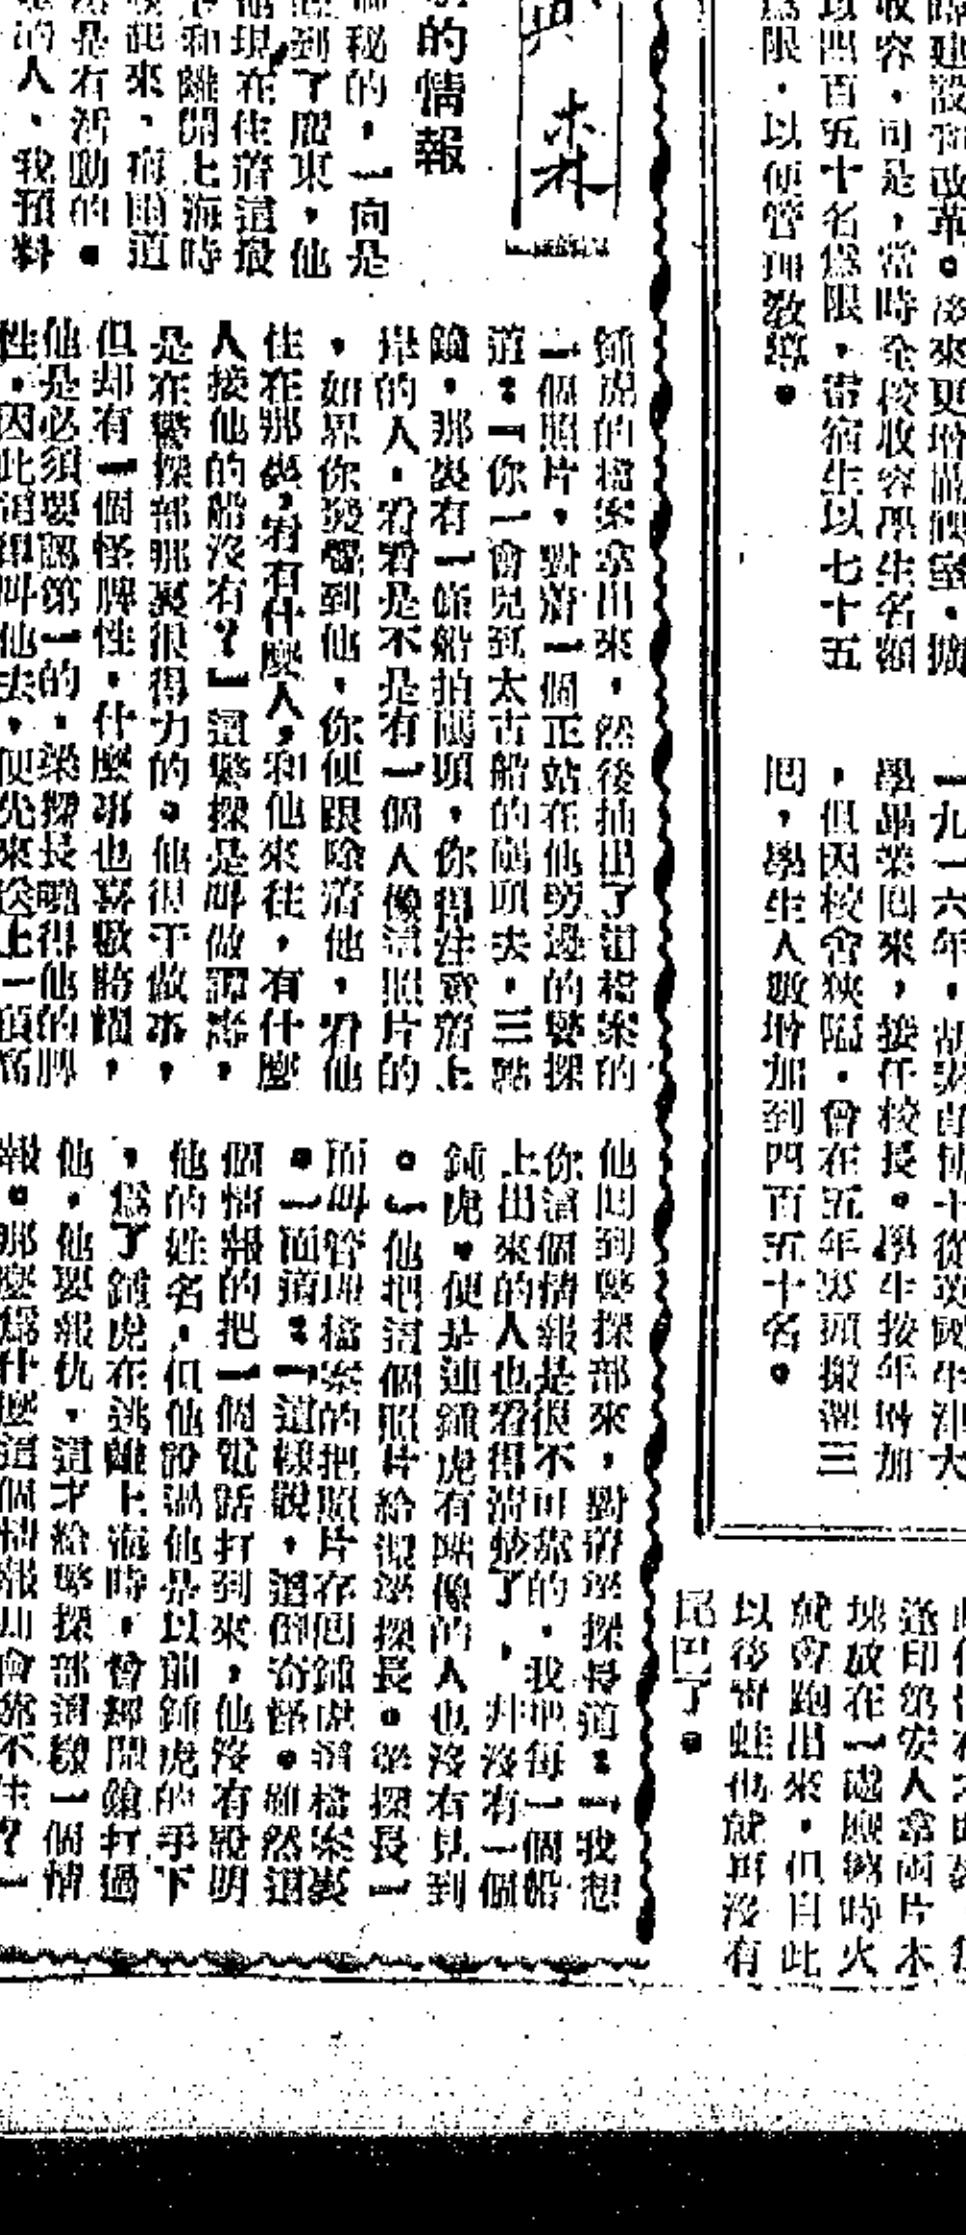 建設和改革。後來更增闢課室,擴
收容,可是,當時全校收容學生名額
以四百五十名爲限,寄宿生以七十五
爲限,以便管理敎導。
一九一六年,博士從英國牛津大
學畢業囘來,接任校長。學生按年增加
,但因校舍狹隘,曾在五年裏頭搬遷三
囘,學生人數增加到四百五十名。
逢印第安人拿兩片木
塊放在一處磨擦時火
就會跑出來,但自此
以後靑蛙也就再沒有
尾巴了。
森
的情報
秘的,一向是
到了廣東,他
現在住着這最
和離開上海時
起來,有頭道
是有活動的。
的人、我預料
鍾虎的檔案拿出來,然後抽出了這檔案的
一個照片,對着一個正站在他旁邊的警探
道:「你一會兒到太古船的碼頭去,三點
鐘,那裏有一條船拍碼頭,你得注意着上
岸的人,看看是不是有一個人像這照片的
,如果你發覺到他,你便跟踪着他,看他
住在那裏,看有什麼人,和他來往,有什麼
人接他的船沒有?」這警探是叫做譚志,
是在警探部那裏很得力的。他很干做事,
但却有一個怪脾性,什麼事也喜歡賭猜,
他是必須要認第一的,梁探長曉得他的脾
性,因此這叫他去,便先來送上一頂高
他囘到警探部來,對着梁探長道:「我想
你這個情報是很不可靠的,我把每一個船
上出來的人也看得淸楚了,幷沒有一個
鍾虎,便是連鍾虎有點像的人也沒有見到
。」他把這個照片給還梁探長。梁探長一
面叫管理檔案的把照片存囘鍾虎這檔案裏
。一面道:「這樣說,還倒奇怪。雖然這
個情報的把一個電話打到來,他沒有說明
他的姓名,但他說過他是以前鍾虎的手下
,爲了鍾虎在逃離上海時,曾經開鎗打過
他,他要報仇,這才給警探部這樣一個情
報。那麼爲什麼這個情報會靠不住?」